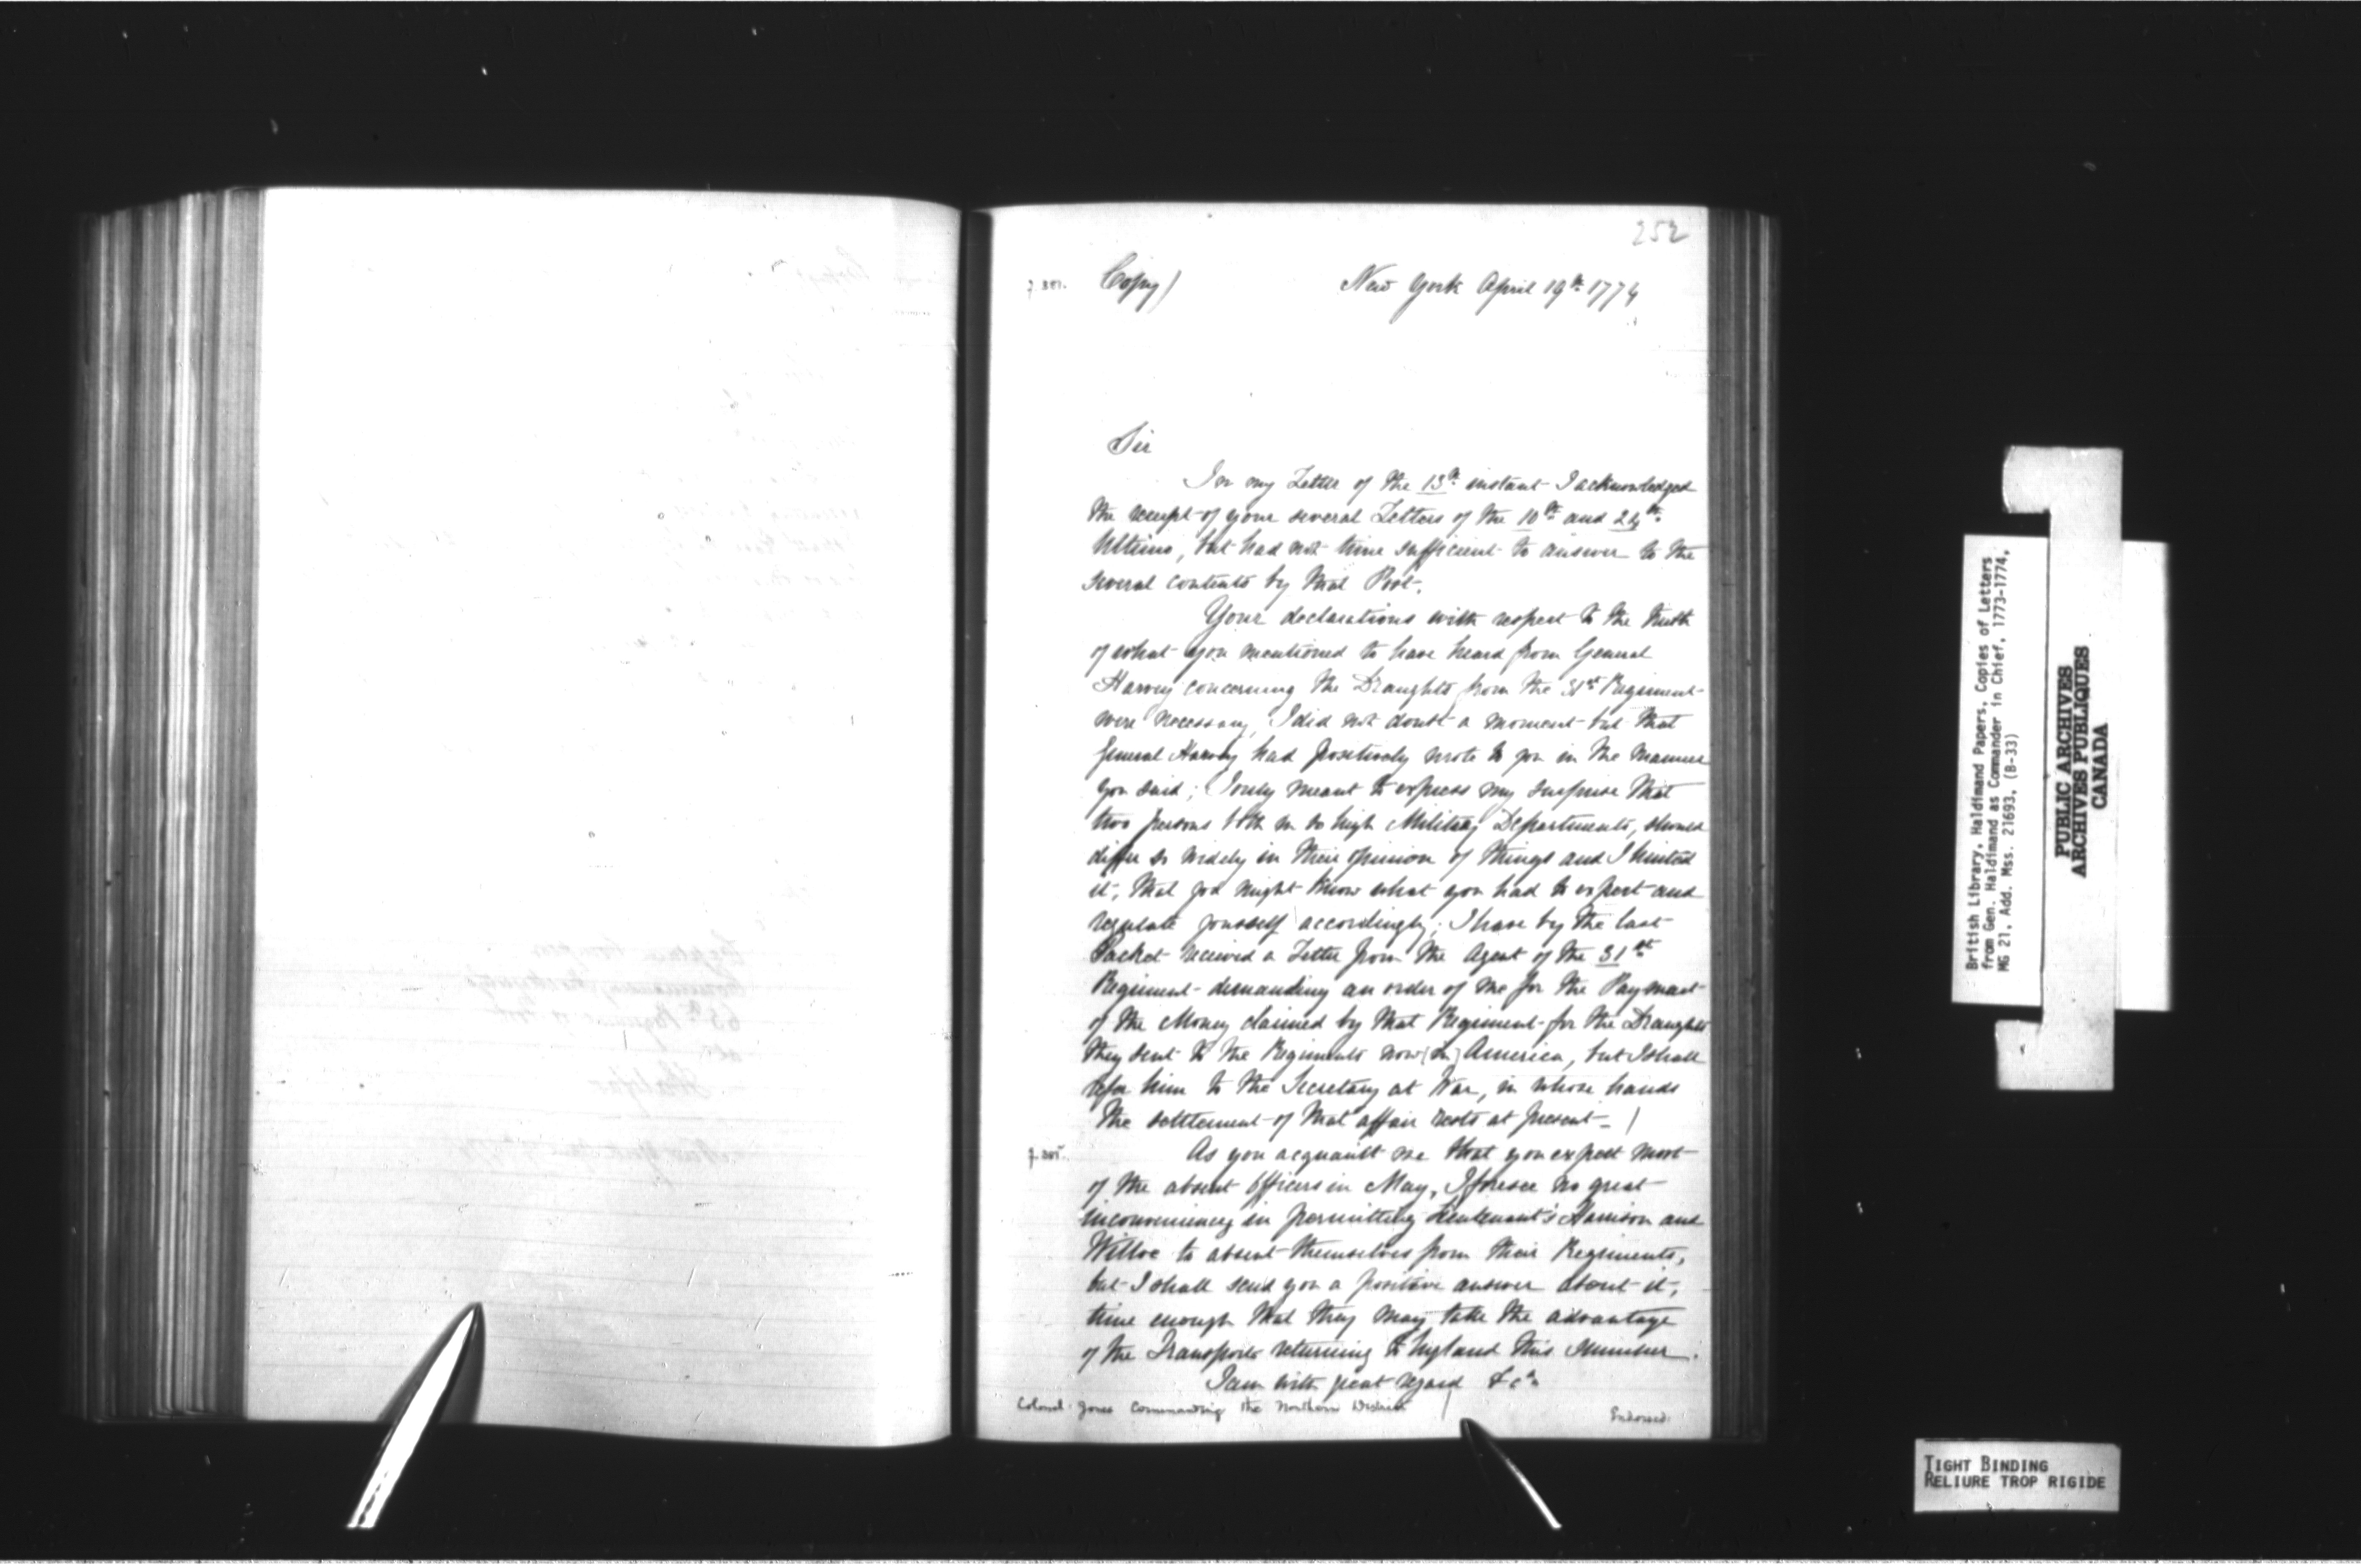 252
Copy) New York April 19th 1774
Sir
In my Letter of the 13th instant I acknowledged
the receipt of your several Letters of the 10th and 24th
Ultimo, but had not time sufficient to answer to the
several contents by that Post.
Your declarations with respect to the truth
of what you mentioned to have heard from General
Harvey concerning the Draughts from the 31st Regiment
were necessary, I did not doubt a moment but that
General Harvey had positively wrote to you in the manner
you said; I only meant to express my surprise that
two persons both in so high Military Departments, should
differ so widely in their opinion of things and I hinted
it, that you might know what you had to expect and
regulate yourself accordingly; I have by the last
Packet received a Letter from the Agent of the 31st
Regiment demanding an order of me for the Payment
of the Money claimed by that Regiment for the Draughts
they sent to the Regiments now (in) America, but I shall
refer him to the Secretary at War, in whose hands
the settlement of that affair rests at present_ /
As you acquaint me that you expect most
of the absent Officers in May, I foresee no great
inconveniency in permitting Lieutenant's Harrison and
Willoe to absent themselves from their Regiments,
but I shall send you a positive answer about it,
time enough that they may take the advantage
of the Transports returning to England this summer.
I am with great regard &ca
Colonel Jones Commanding the Northern District /
Endorsed:
British Library, Haldimand Papers, Copies of Letters
from Gen. Haldimand as Commander in Chief, 1773-1774,
MG 21, Add. Mss. 21693, (B-33)
PUBLIC ARCHIVES
ARCHIVES PUBLIQUES
CANADA
TIGHT BINDING
RELIURE TROP RIGIDE